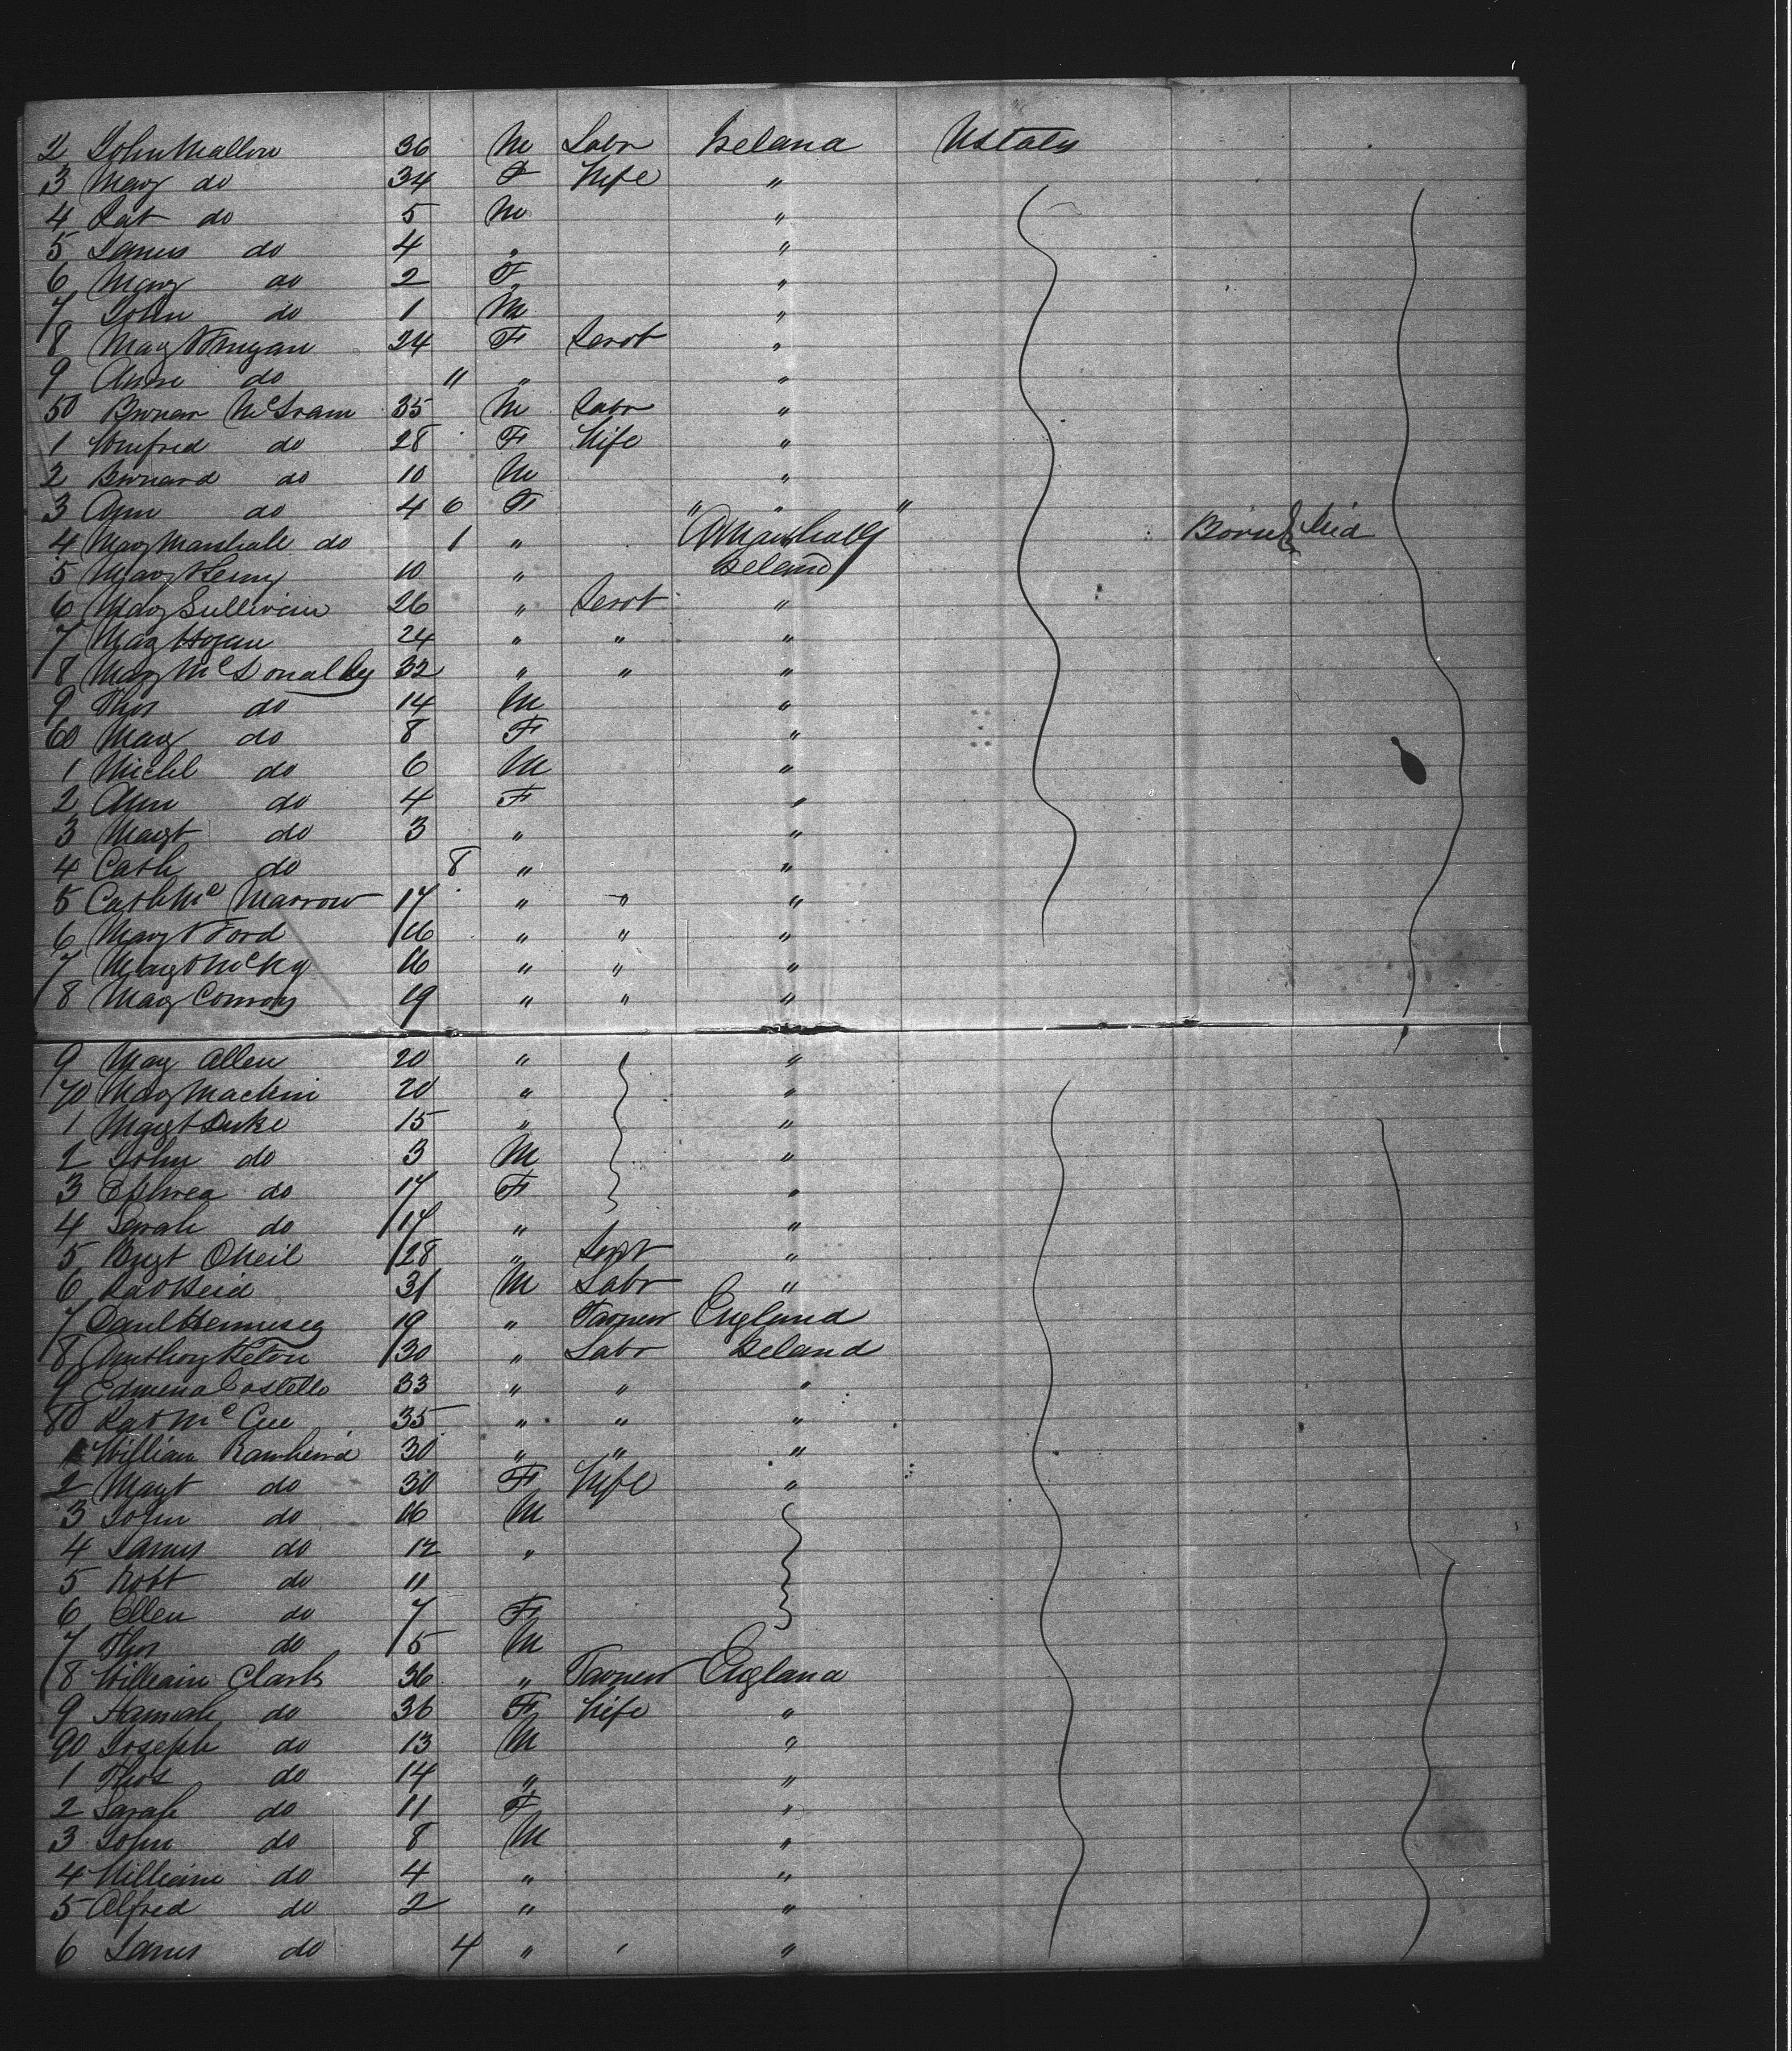 2 John Mallon 36 M Labr Ireland Ustates
3 Mary do 34 F Wife "
4 Pat do 5 M "
5 James do 4 " "
6 Mary do 2 F "
7 John do 1 M "
8 Mary 24 F Servt "
9 Anne do 11 " "
50 35 M Labr "
1 Winifred do 28 F Wife "
2 Bernard do 10 M "
3 Ann do 4 6 F " " "
4 Mary Marshall do 1 " "A Marshall" Born & Died
5 Mary Henry 10 " Ireland
6 Mary Sullivan 26 " Servt "
7 Mary Hogan 24 " " "
8 Mary McDonalds 32 " " "
9 Thos do 14 M "
60 Mary do 8 F "
1 Michl do 6 M "
2 Ann do 4 F "
3 Margt do 3 " "
4 Cath do 8 " "
5 Cath Mc Marrow 17 " " "
6 Margt Ford 16 " " "
7 Margt 16 " " "
8 Mary Conroy 19 " " "
9 Mary Allen 20 " "
70 Mary Mackin 20 " "
1 Margt Duke 15 " "
2 John do 3 M "
3 do 17 F "
4 Sarah do 14 " "
5 Brigt ONeil 28 " Servt "
6 Pat Reid 31 M Labr "
7 Danl Hennesey 19 " Farmer England
8 Anthony 30 " Labr Ireland
9 Edmund Costello 33 " " "
80 Pat McCue 35 " " "
1 William 30 " " "
2 Margt do 30 F Wife "
3 John do 16 M
4 James do 12 "
5 Robt do 11
6 Ellen do 7 F
7 Thos do 5 M
8 William Clark 36 " Farmer England
9 Hannah do 36 F Wife "
90 Joseph do 13 M "
1 Thos do 14 " "
2 Sarah do 11 F "
3 John do 8 M "
4 William do 4 " "
5 Alfred do 2 " "
6 James do 4 " "